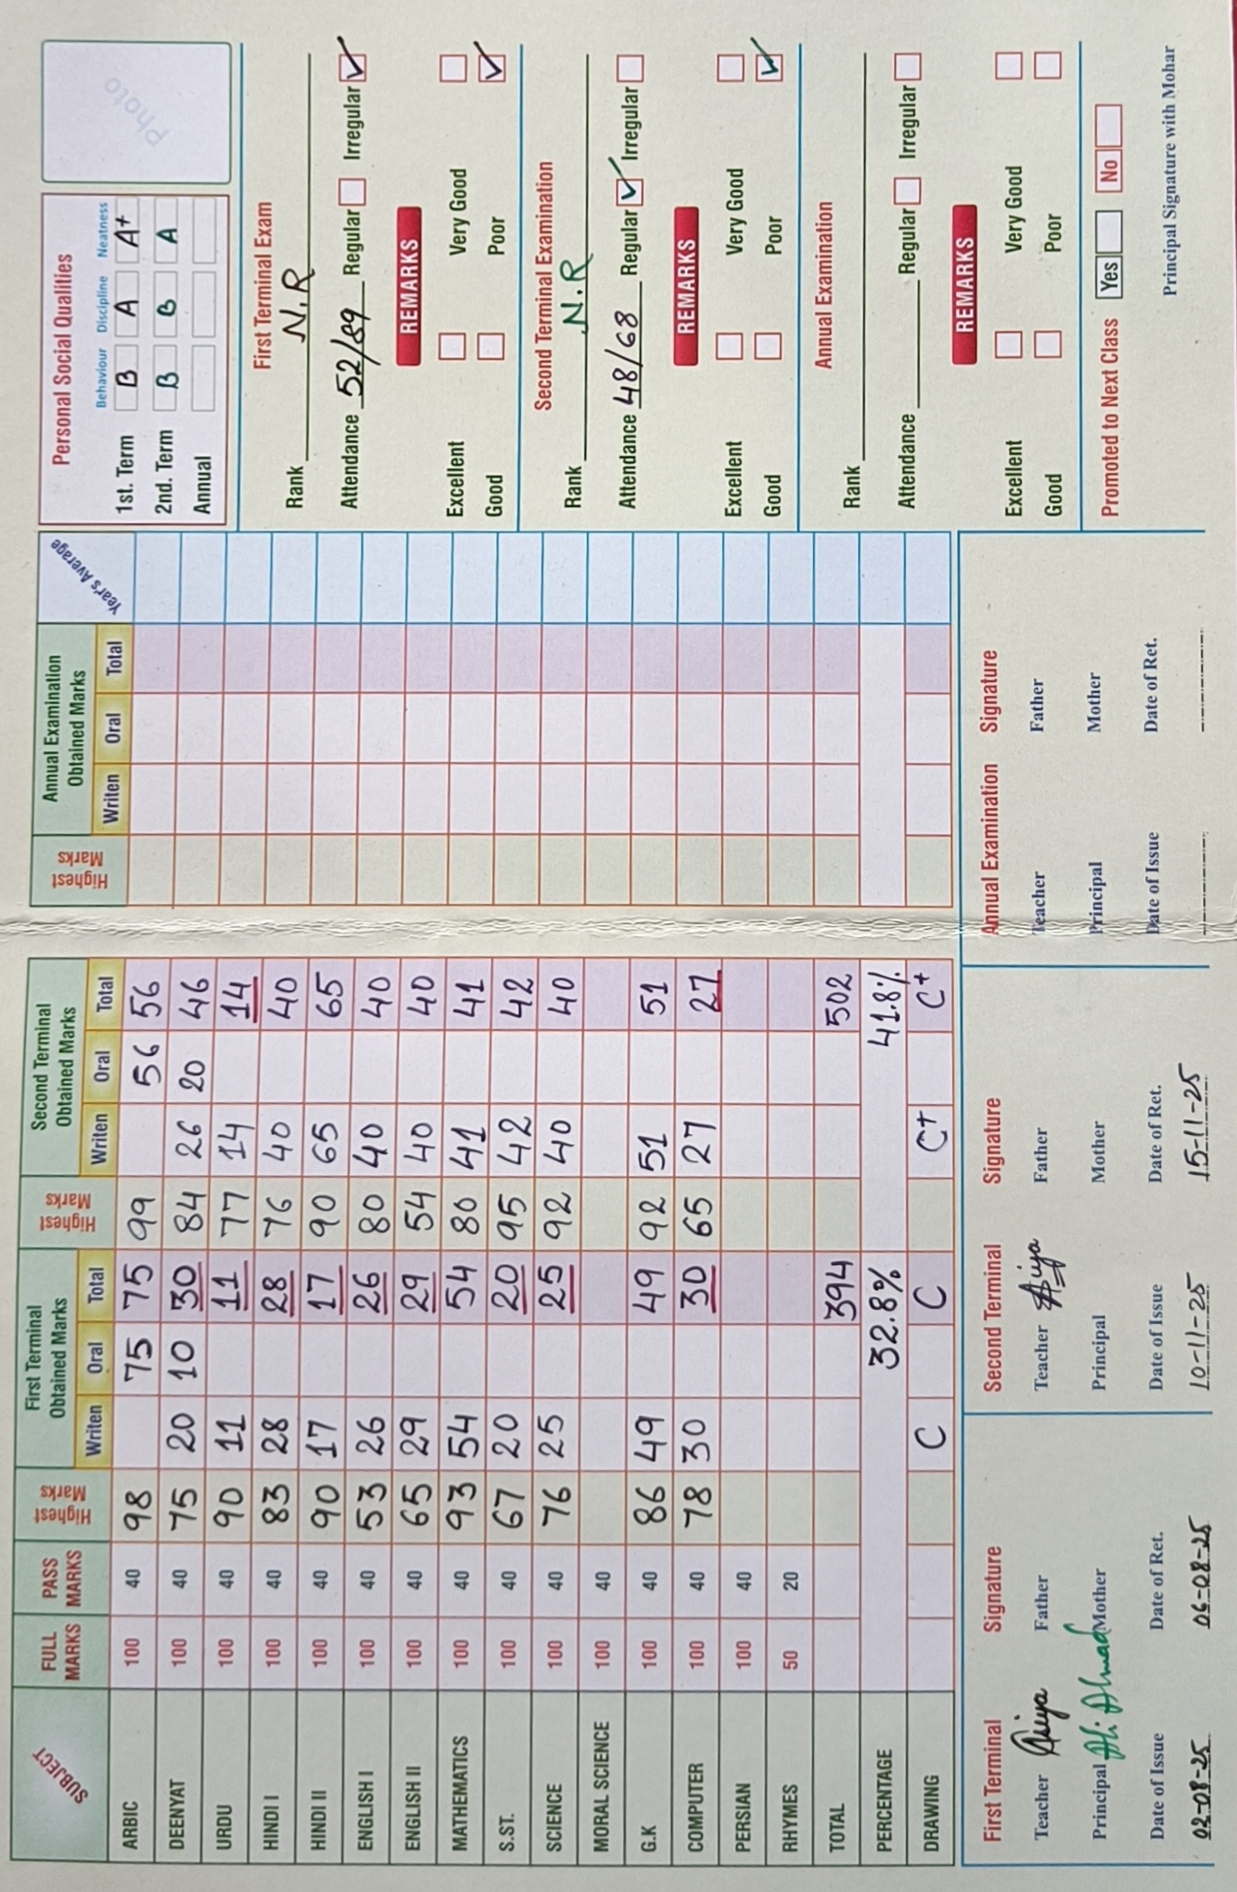 SUBJECT FULL MARKS PASS MARKS Highest Marks First Terminal Obtained Marks Writen Oral Total Highest Marks Second Terminal Obtained Marks Writen Oral Total
ARBIC 100 40 98 75 75 99 56 56
DEENYAT 100 40 75 20 10 30 84 26 20 46
URDU 100 40 90 11 11 77 14 14
HINDI I 100 40 83 28 28 76 40 40
HINDI II 100 40 90 17 17 90 65 65
ENGLISH I 100 40 53 26 26 80 40 40
ENGLISH II 100 40 65 29 29 54 40 40
MATHEMATICS 100 40 93 54 54 80 41 41
S.ST. 100 40 67 20 20 95 42 42
SCIENCE 100 40 76 25 25 92 40 40
MORAL SCIENCE 100 40
G.K 100 40 86 49 49 92 51 51
COMPUTER 100 40 78 30 30 65 27 27
PERSIAN 100 40
RHYMES 50 20
TOTAL 394 502
PERCENTAGE 32.8% 41.8%
DRAWING C C C+ C+
First Terminal Signature
Teacher Father
Principal Ali Ahmad Mother
Date of Issue Date of Ret.
02-08-25 06-08-25
Second Terminal Signature
Teacher Father
Principal Mother
Date of Issue Date of Ret.
10-11-25 15-11-25
Annual Examination Obtained Marks Year's Average
Highest Marks Writen Oral Total
Annual Examination Signature
Teacher Father
Principal Mother
Date of Issue Date of Ret.
Personal Social Qualities
Behaviour Discipline Neatness
1st. Term B A A+
2nd. Term B B A
Annual
Photo
First Terminal Exam
Rank N.R
Attendance 52/89 Regular Irregular ✓
REMARKS
Excellent Very Good
Good Poor ✓
Second Terminal Examination
Rank N.R
Attendance 48/68 Regular ✓ Irregular
REMARKS
Excellent Very Good
Good Poor ✓
Annual Examination
Rank
Attendance Regular Irregular
REMARKS
Excellent Very Good
Good Poor
Promoted to Next Class Yes No
Principal Signature with Mohar